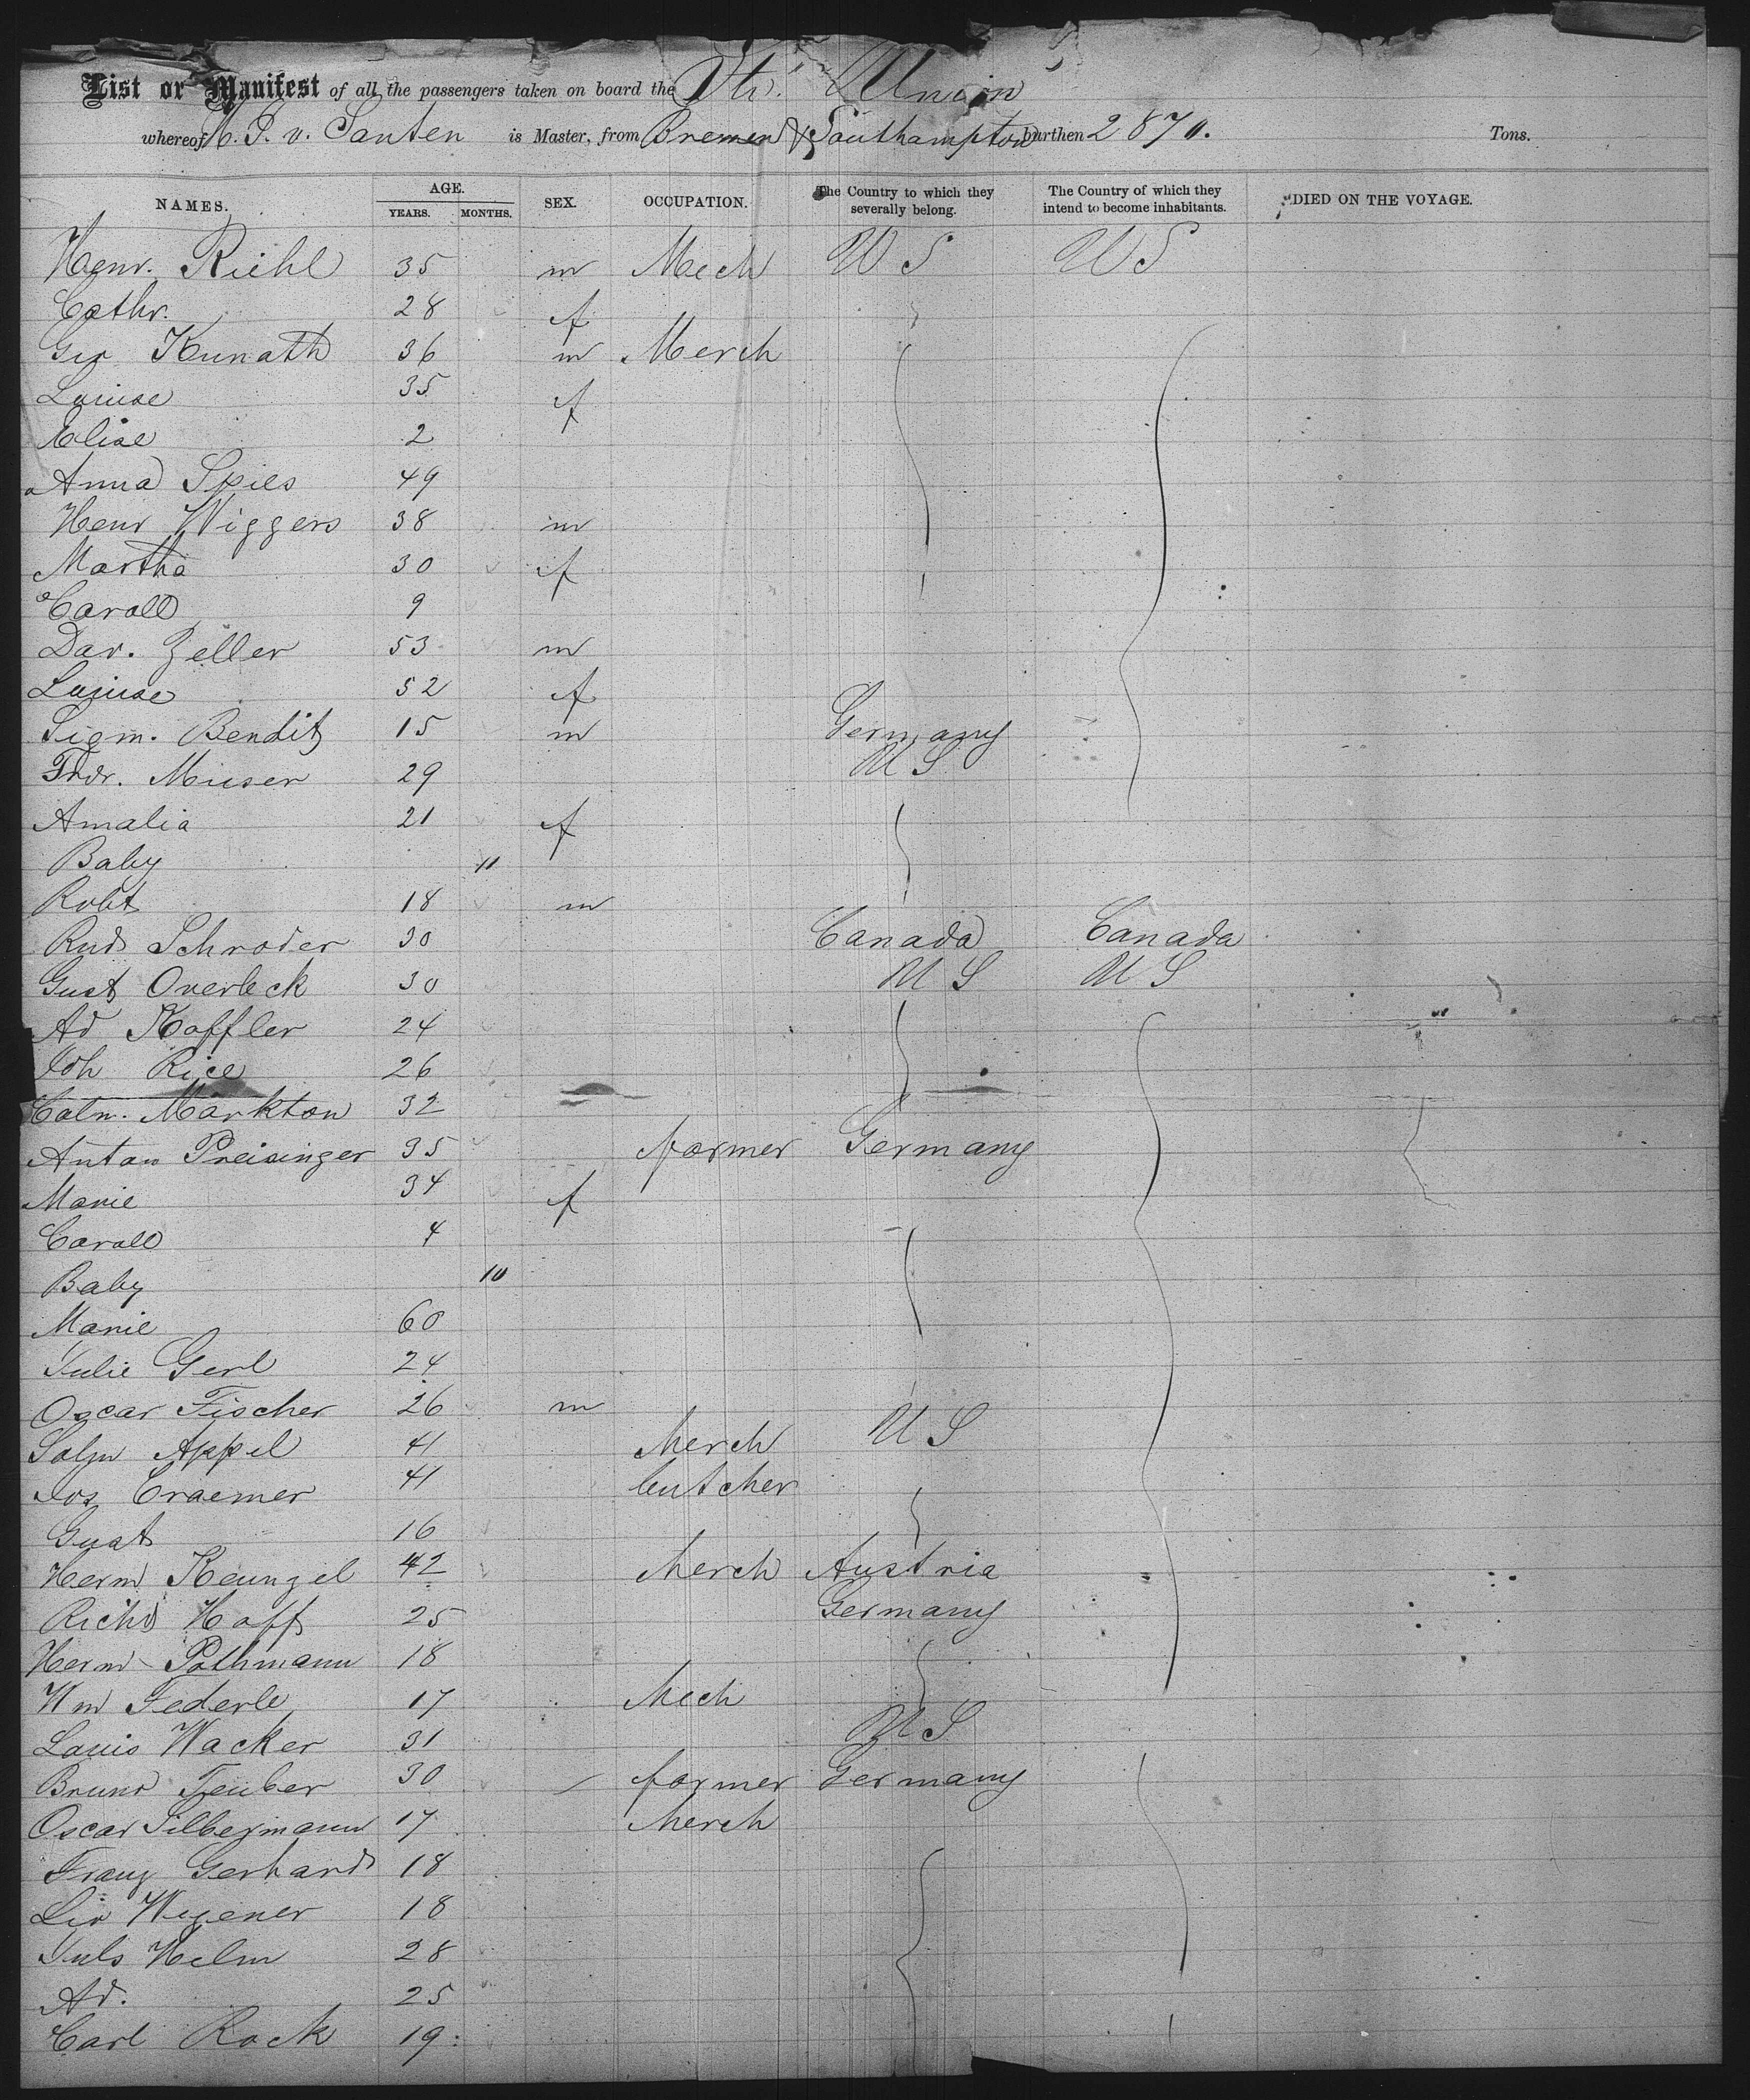 List or Manifest of all the passengers taken on board the Str. Union
whereof H. J. v. Santen is Master, from Bremen & Southampton burthen 2870. Tons.
NAMES. AGE. YEARS. MONTHS. SEX. OCCUPATION. The Country to which they severally belong. The Country of which they intend to become inhabitants. DIED ON THE VOYAGE.
Henr. Riehl 35 m Mech U S U S
Cathr. 28 f
Geo Kunath 36 m Merch
Louise 35 f
Elise 2
Anna Spies 49
Henr Wiggers 38 m
Martha 30 f
Caroll 9
Dav. Zeller 53 m
Louise 52 f
Sigm. Bendit 15 m Germany
Frdr. Muser 29 U S
Amalia 21 f
Baby 11
Robt 18 m
Rud Schroder 30 Canada Canada
Gust Overbeck 30 U S U S
Ad Koffler 24
Joh Rice 26
Calm. Markton 32
Anton Preisinger 35 farmer Germany
Marie 34 f
Caroll 4
Baby 10
Marie 60
Julie Gerl 24
Oscar Fischer 26 m
Salm Appel 41 Merch U S
Jos Craemer 41 butcher
Gust 16
Herm Keungel 42 Merch Austria
Richd Hoff 25 Germany
Herm Pothmann 18
Wm Federle 17 Mech
Louis Wacker 31 U S
Bruno Teuber 30 farmer Germany
Oscar Silbermann 17 Merch
Franz Gerhard 18
Leo Wegener 18
Juls Helm 28
Ad. 25
Carl Rock 19